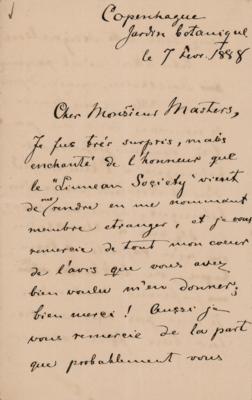 Copenhague
Jardin botanique
le 7 Fevr. 1888
Cher Monsieur Masters,
Je fus très surpris, mais
enchanté de l'honneur que
le "Linnean Society" vient
de me rendre en me nommant
membre etranger, et je vous
remercie de tout mon coeur
de l'avis que vous avez
bien voulu m'en donner;
bien merci! Aussi je
vous remercie de la part
que probablement vous